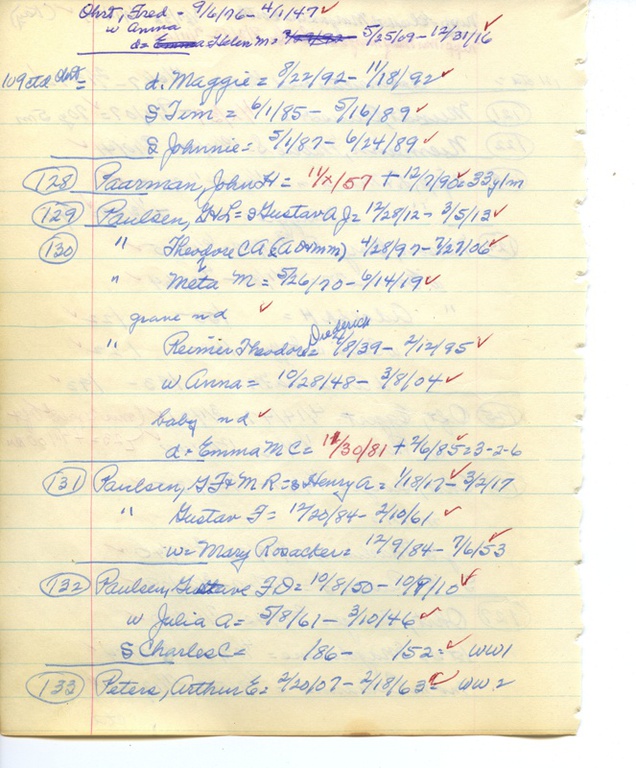 Ohrt, Fred - 9/6/76 - 4/1/47 ✓
w Anna
d= Emma Helen M= 5/25/09 - 12/31/16 ✓
109 ctd Ohrt= d. Maggie = 8/22/92 - 11/18/92 ✓
S Tim = 6/1/85 - 5/16/89 ✓
S Johnnie = 5/1/87 - 6/24/89 ✓
128 Paarman, John H = 11/x/57 + 12/7/90 = 33y1m
129 Paulsen, G+L = s Gustav A J = 12/28/12 - 3/5/13 ✓
130 " Theodore C A (A D+MM) 4/28/97 - 7/27/06 ✓
" Meta M = 5/26/70 - 6/14/19 ✓
grave nd ✓
" Reimer Theodore Diederich = 9/8/39 - 2/12/95 ✓
w Anna = 10/28/48 - 3/8/04 ✓
baby nd ✓
d = Emma M C = 11/30/81 + 2/6/85 = 3-2-6
131 Paulsen, G F + M R = s Henry A = 1/18/17 - 3/2/17
" Gustav F = 12/20/84 - 2/10/61 ✓
w = Mary Rosacker = 12/9/84 - 7/6/53
132 Paulsen, Gustave F D = 10/8/50 - 10/9/10 ✓
w Julia A = 5/8/61 - 3/10/46 ✓
S Charles C = /86 - /52 = ✓ WW1
133 Peters, Arthur E = 2/20/07 - 2/18/63 = WW2